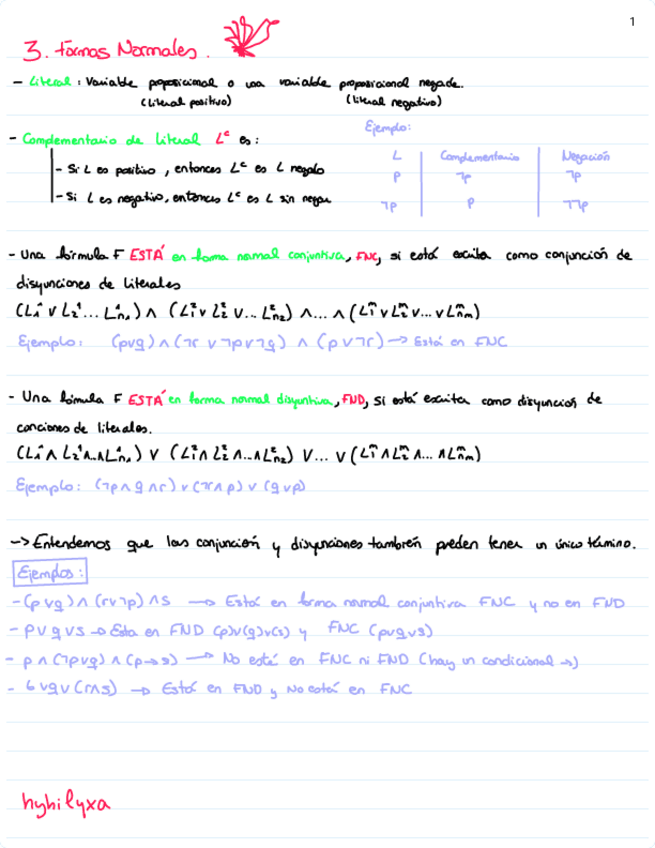 1
3. Formas Normales.
- Literal: Variable proposicional o una variable proposicional negada.
(Literal positivo) (literal negativo)
- Complementario de literal Lᶜ es:
- Si L es positivo, entonces Lᶜ es L negado
- Si L es negativo, entonces Lᶜ es L sin negar
Ejemplo:
L Complementario Negación
p ¬p ¬p
¬p p ¬¬p
- Una fórmula F ESTÁ en forma normal conjuntiva, FNC, si está escrita como conjunción de
disyunciones de literales
(L₁¹ ∨ L₂¹ ... L¹ₙ₁) ∧ (L₁² ∨ L₂² ∨ ... L²ₙ₂) ∧ ... ∧ (L₁ᵐ ∨ L₂ᵐ ∨ ... ∨ Lᵐₙₘ)
Ejemplo: (p∨q) ∧ (¬r ∨ ¬p ∨ ¬q) ∧ (p ∨ ¬r) → Está en FNC
- Una fórmula F ESTÁ en forma normal disyuntiva, FND, si está escrita como disyunción de
conciones de literales.
(L₁¹ ∧ L₂¹ ∧ ... ∧ L¹ₙ₁) ∨ (L₁² ∧ L₂² ∧ ... ∧ L²ₙ₂) ∨ ... ∨ (L₁ᵐ ∧ L₂ᵐ ∧ ... ∧ Lᵐₙₘ)
Ejemplo: (¬p ∧ q ∧ r) ∨ (¬r ∧ p) ∨ (q ∨ p)
-> Entendemos que las conjunción y disyunciones también pueden tener un único término.
Ejemplos:
- (p ∨ q) ∧ (r ∨ ¬p) ∧ s → Está en forma normal conjuntiva FNC y no en FND
- p ∨ q ∨ s → Esta en FND (p)∨(q)∨(s) y FNC (p∨q∨s)
- p ∧ (¬p∨q) ∧ (p→s) → No está en FNC ni FND (hay un condicional →)
- ∨q∨(r∧s) → Está en FND y No está en FNC
hyhilyxa